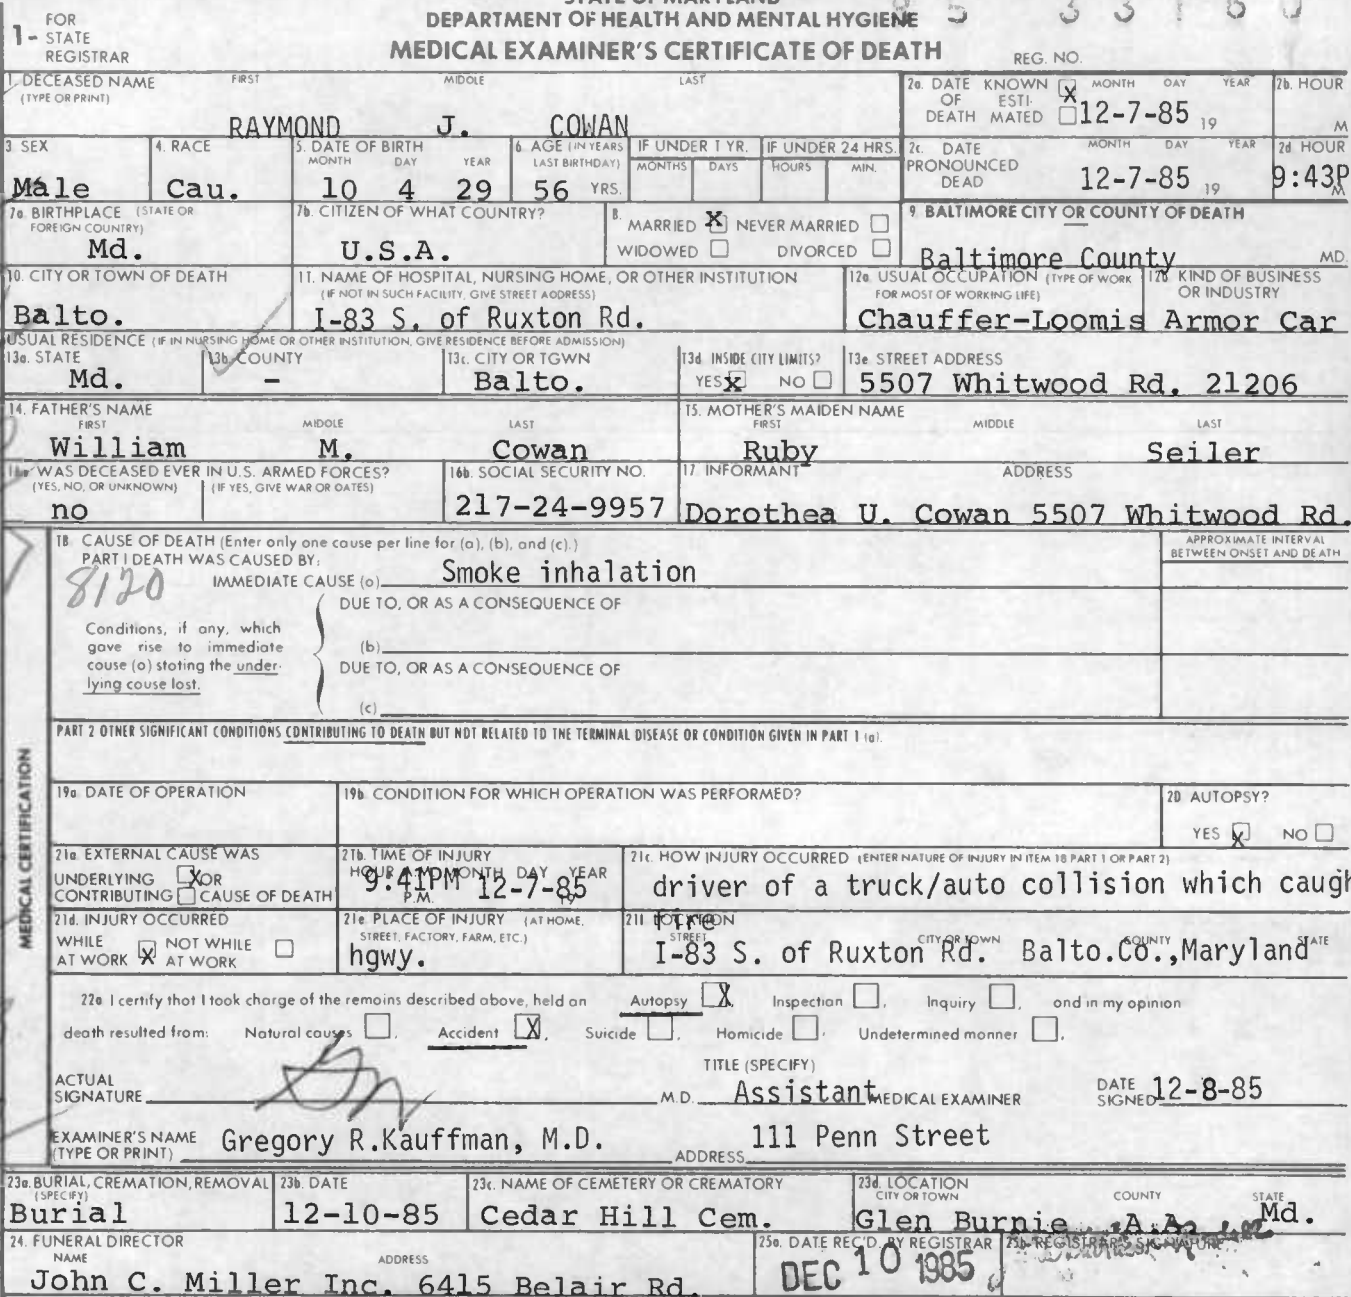 STATE OF MARYLAND
DEPARTMENT OF HEALTH AND MENTAL HYGIENE
MEDICAL EXAMINER'S CERTIFICATE OF DEATH
1- FOR STATE REGISTRAR
REG. NO.
1. DECEASED NAME (TYPE OR PRINT) FIRST MIDDLE LAST
RAYMOND J. COWAN
2a. DATE OF DEATH KNOWN X ESTIMATED MONTH DAY YEAR 12-7-85 19
2b. HOUR M
3. SEX Male
4. RACE Cau.
5. DATE OF BIRTH MONTH DAY YEAR 10 4 29
6. AGE (IN YEARS LAST BIRTHDAY) 56 YRS.
IF UNDER 1 YR. MONTHS DAYS
IF UNDER 24 HRS. HOURS MIN.
2c. DATE PRONOUNCED DEAD MONTH DAY YEAR 12-7-85 19
2d HOUR 9:43P M
7a. BIRTHPLACE (STATE OR FOREIGN COUNTRY) Md.
7b. CITIZEN OF WHAT COUNTRY? U.S.A.
8. MARRIED X NEVER MARRIED WIDOWED DIVORCED
9. BALTIMORE CITY OR COUNTY OF DEATH Baltimore County MD.
10. CITY OR TOWN OF DEATH Balto.
11. NAME OF HOSPITAL, NURSING HOME, OR OTHER INSTITUTION (IF NOT IN SUCH FACILITY, GIVE STREET ADDRESS) I-83 S. of Ruxton Rd.
12a. USUAL OCCUPATION (TYPE OF WORK FOR MOST OF WORKING LIFE) Chauffer-Loomis
12b. KIND OF BUSINESS OR INDUSTRY Armor Car
USUAL RESIDENCE (IF IN NURSING HOME OR OTHER INSTITUTION, GIVE RESIDENCE BEFORE ADMISSION)
13a. STATE Md.
13b. COUNTY -
13c. CITY OR TOWN Balto.
13d. INSIDE CITY LIMITS? YES X NO
13e. STREET ADDRESS 5507 Whitwood Rd. 21206
14. FATHER'S NAME FIRST MIDDLE LAST William M. Cowan
15. MOTHER'S MAIDEN NAME FIRST MIDDLE LAST Ruby Seiler
16a. WAS DECEASED EVER IN U.S. ARMED FORCES? (YES, NO, OR UNKNOWN) (IF YES, GIVE WAR OR DATES) no
16b. SOCIAL SECURITY NO. 217-24-9957
17. INFORMANT ADDRESS Dorothea U. Cowan 5507 Whitwood Rd.
MEDICAL CERTIFICATION
18. CAUSE OF DEATH (Enter only one cause per line for (a), (b), and (c).)
APPROXIMATE INTERVAL BETWEEN ONSET AND DEATH
PART I DEATH WAS CAUSED BY:
8120
IMMEDIATE CAUSE (a) Smoke inhalation
DUE TO, OR AS A CONSEQUENCE OF
Conditions, if any, which gave rise to immediate cause (a) stating the underlying cause last.
(b)
DUE TO, OR AS A CONSEQUENCE OF
(c)
PART 2 OTHER SIGNIFICANT CONDITIONS CONTRIBUTING TO DEATH BUT NOT RELATED TO THE TERMINAL DISEASE OR CONDITION GIVEN IN PART 1 (a).
19a. DATE OF OPERATION
19b. CONDITION FOR WHICH OPERATION WAS PERFORMED?
20 AUTOPSY? YES X NO
21a. EXTERNAL CAUSE WAS UNDERLYING X OR CONTRIBUTING CAUSE OF DEATH
21b. TIME OF INJURY HOUR MONTH DAY YEAR P.M. 19 9:41PM 12-7-85
21c. HOW INJURY OCCURRED (ENTER NATURE OF INJURY IN ITEM 18 PART 1 OR PART 2)
driver of a truck/auto collision which caugh
fire
21d. INJURY OCCURRED WHILE AT WORK X NOT WHILE AT WORK
21e. PLACE OF INJURY (AT HOME, STREET, FACTORY, FARM, ETC.) hgwy.
21f. LOCATION STREET CITY OR TOWN COUNTY STATE I-83 S. of Ruxton Rd. Balto.Co.,Maryland
22a I certify that I took charge of the remains described above, held an Autopsy X, Inspection, Inquiry, and in my opinion
death resulted from: Natural causes, Accident X, Suicide, Homicide, Undetermined manner.
ACTUAL SIGNATURE M.D. TITLE (SPECIFY) Assistant MEDICAL EXAMINER DATE SIGNED 12-8-85
EXAMINER'S NAME (TYPE OR PRINT) Gregory R.Kauffman, M.D. ADDRESS 111 Penn Street
23a. BURIAL, CREMATION, REMOVAL (SPECIFY) Burial
23b. DATE 12-10-85
23c. NAME OF CEMETERY OR CREMATORY Cedar Hill Cem.
23d. LOCATION CITY OR TOWN COUNTY STATE Glen Burnie A.A. Md.
24. FUNERAL DIRECTOR NAME ADDRESS John C. Miller Inc. 6415 Belair Rd.
25a. DATE REC'D. BY REGISTRAR DEC 10 1985
25b. REGISTRAR'S SIGNATURE